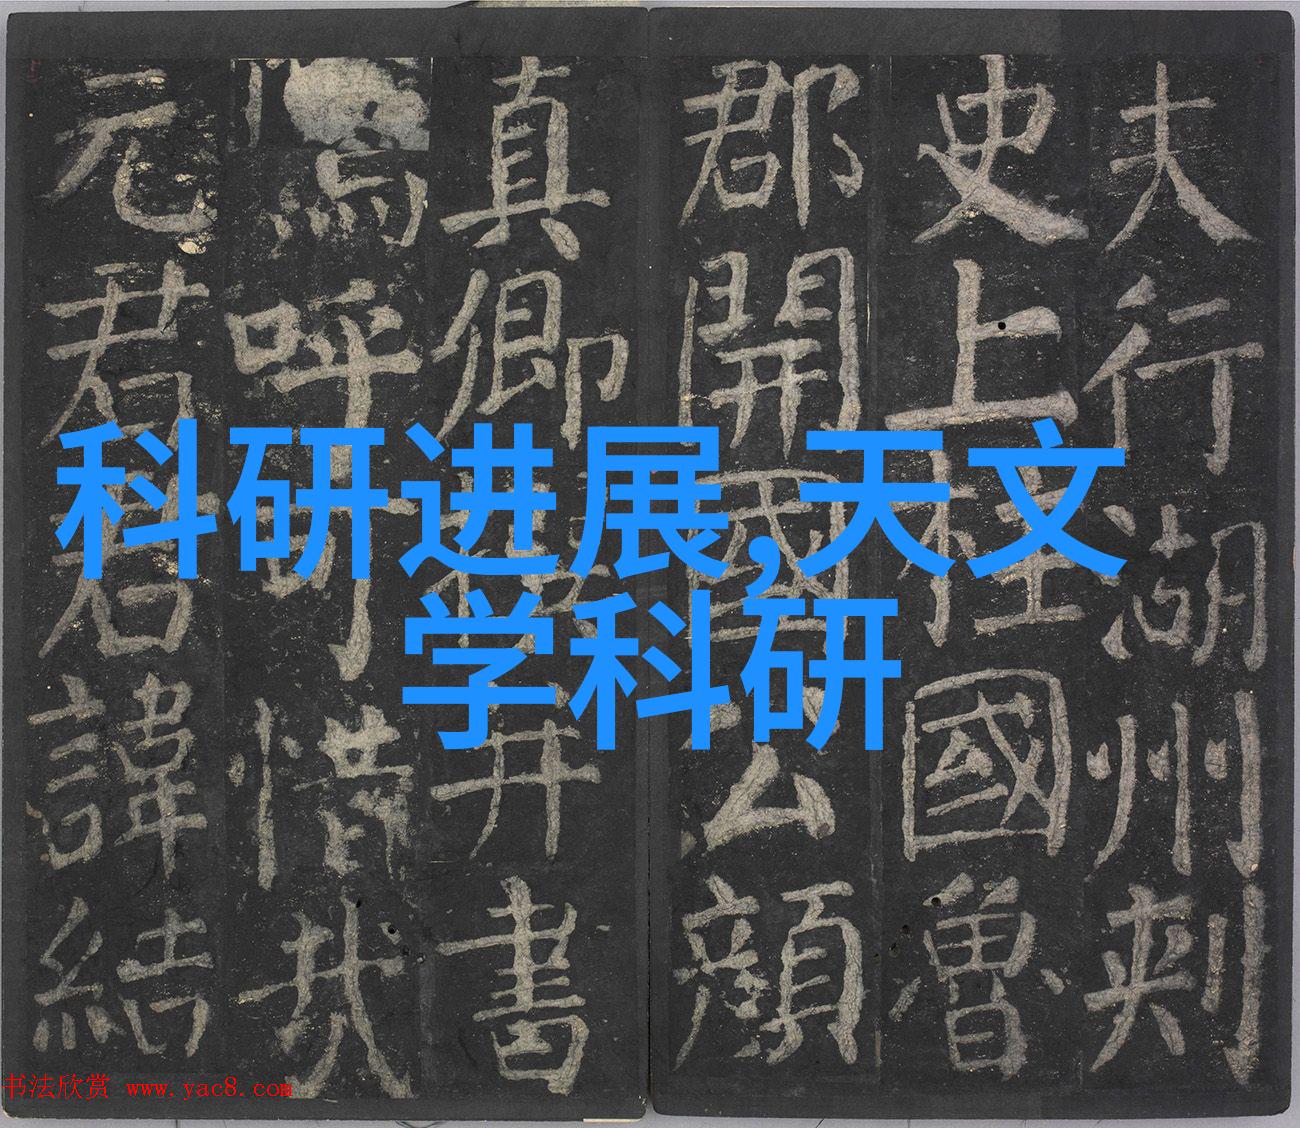 科研进展,天文
学科研
夫行湖州刺
史上柱國魯
郡開國公顏
真卿撰并書
嗚呼可惜哉
元君君諱結
书法欣赏 www.yac8.com